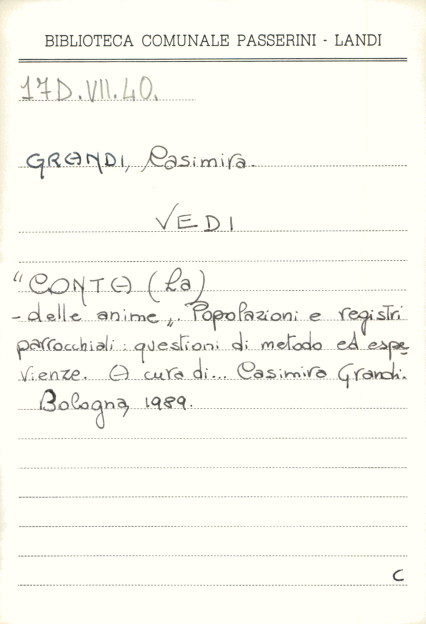 BIBLIOTECA COMUNALE PASSERINI - LANDI
17D.VII.40.
GRANDI, Casimira.
VEDI
"CONTA (La)
- delle anime„. Popolazioni e registri
parrocchiali: questioni di metodo ed espe-
rienze. A cura di... Casimira Grandi.
Bologna, 1989.
C